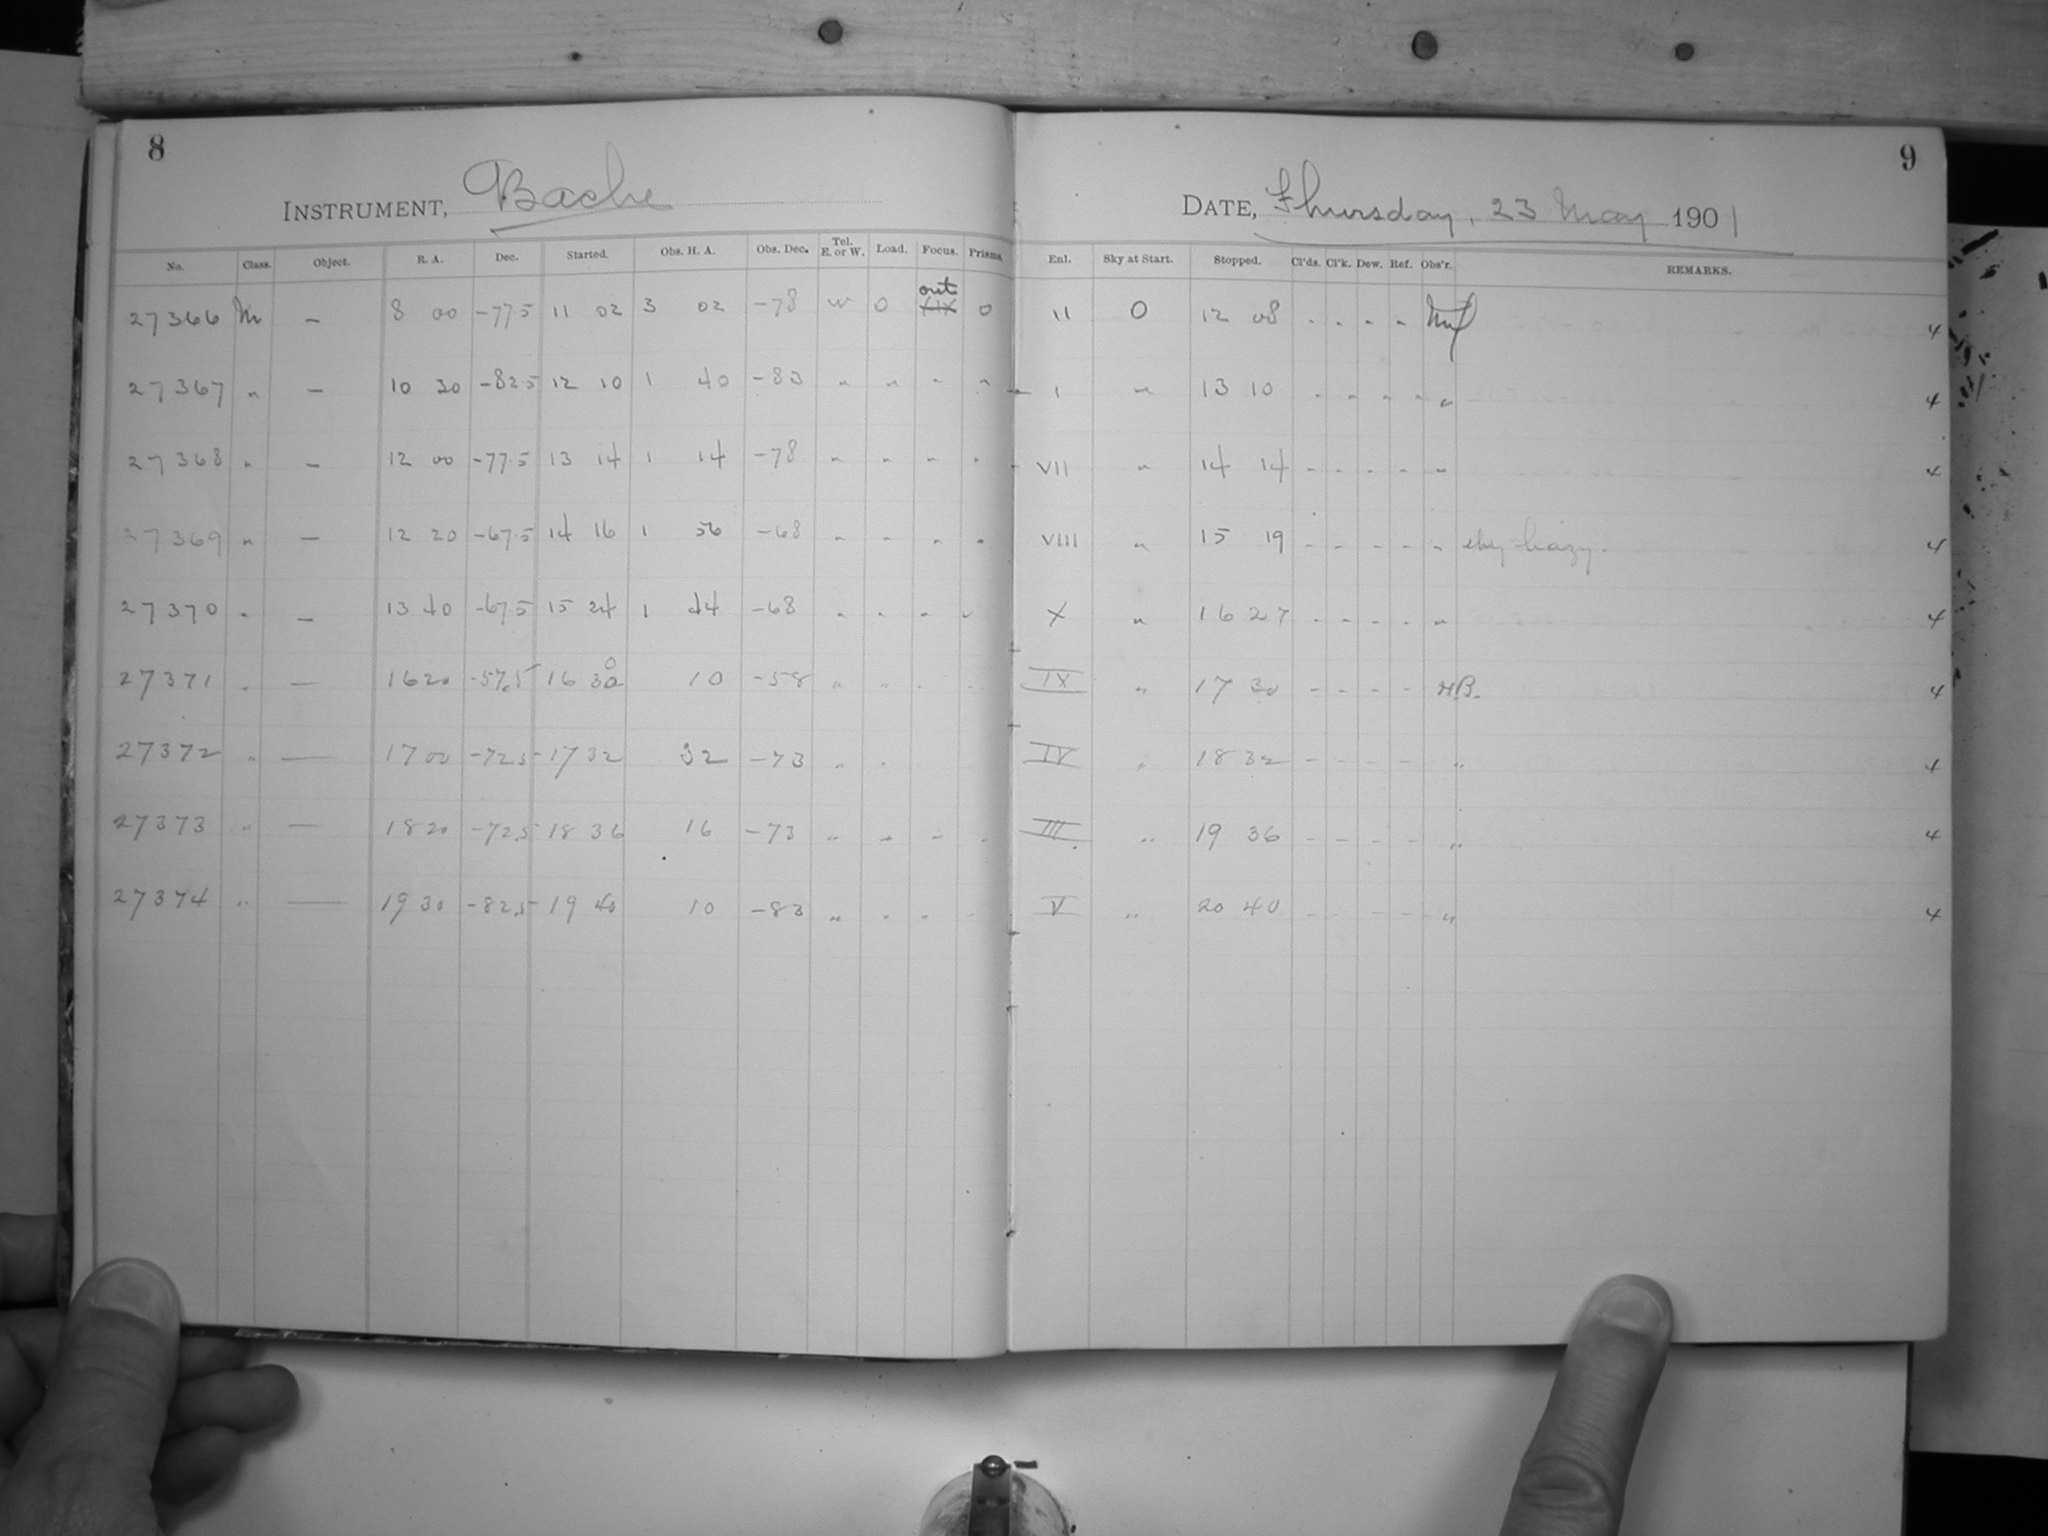 8
INSTRUMENT, Bache
No. Class. Object. R. A. Dec. Started. Obs. H. A. Obs. Dec. Tel. E. or W. Load. Focus. Prisms.
out
27366 M — 8 00 -77.5 11 02 3 02 -78 W 0 0
27367 " — 10 30 -82.5 12 10 1 40 -83 " " " "
27368 " — 12 00 -77.5 13 14 1 14 -78 " " " "
27369 " — 12 20 -67.5 14 16 1 56 -68 " " " "
27370 " — 13 40 -67.5 15 24 1 44 -68 " " " "
27371 " — 16 20 -57.5 16 30 10 -58 " " " "
27372 " — 17 00 -72.5 17 32 32 -73 " "
27373 " — 18 20 -72.5 18 36 16 -73 " " " "
27374 " — 19 30 -82.5 19 40 10 -83 " " " "
9
DATE, Thursday, 23 May 1901
Enl. Sky at Start. Stopped. Cl'ds. Cl'k. Dew. Ref. Obs'r. REMARKS.
II 0 12 08 - - - - 4
I " 13 10 - - - - " 4
VII " 14 14 - - - - " 4
VIII " 15 19 - - - - " sky hazy. 4
X " 16 27 - - - - " 4
IX " 17 30 - - - - HB. 4
IV " 18 32 - - - - " 4
III " 19 36 - - - - " 4
V " 20 40 - - - - " 4